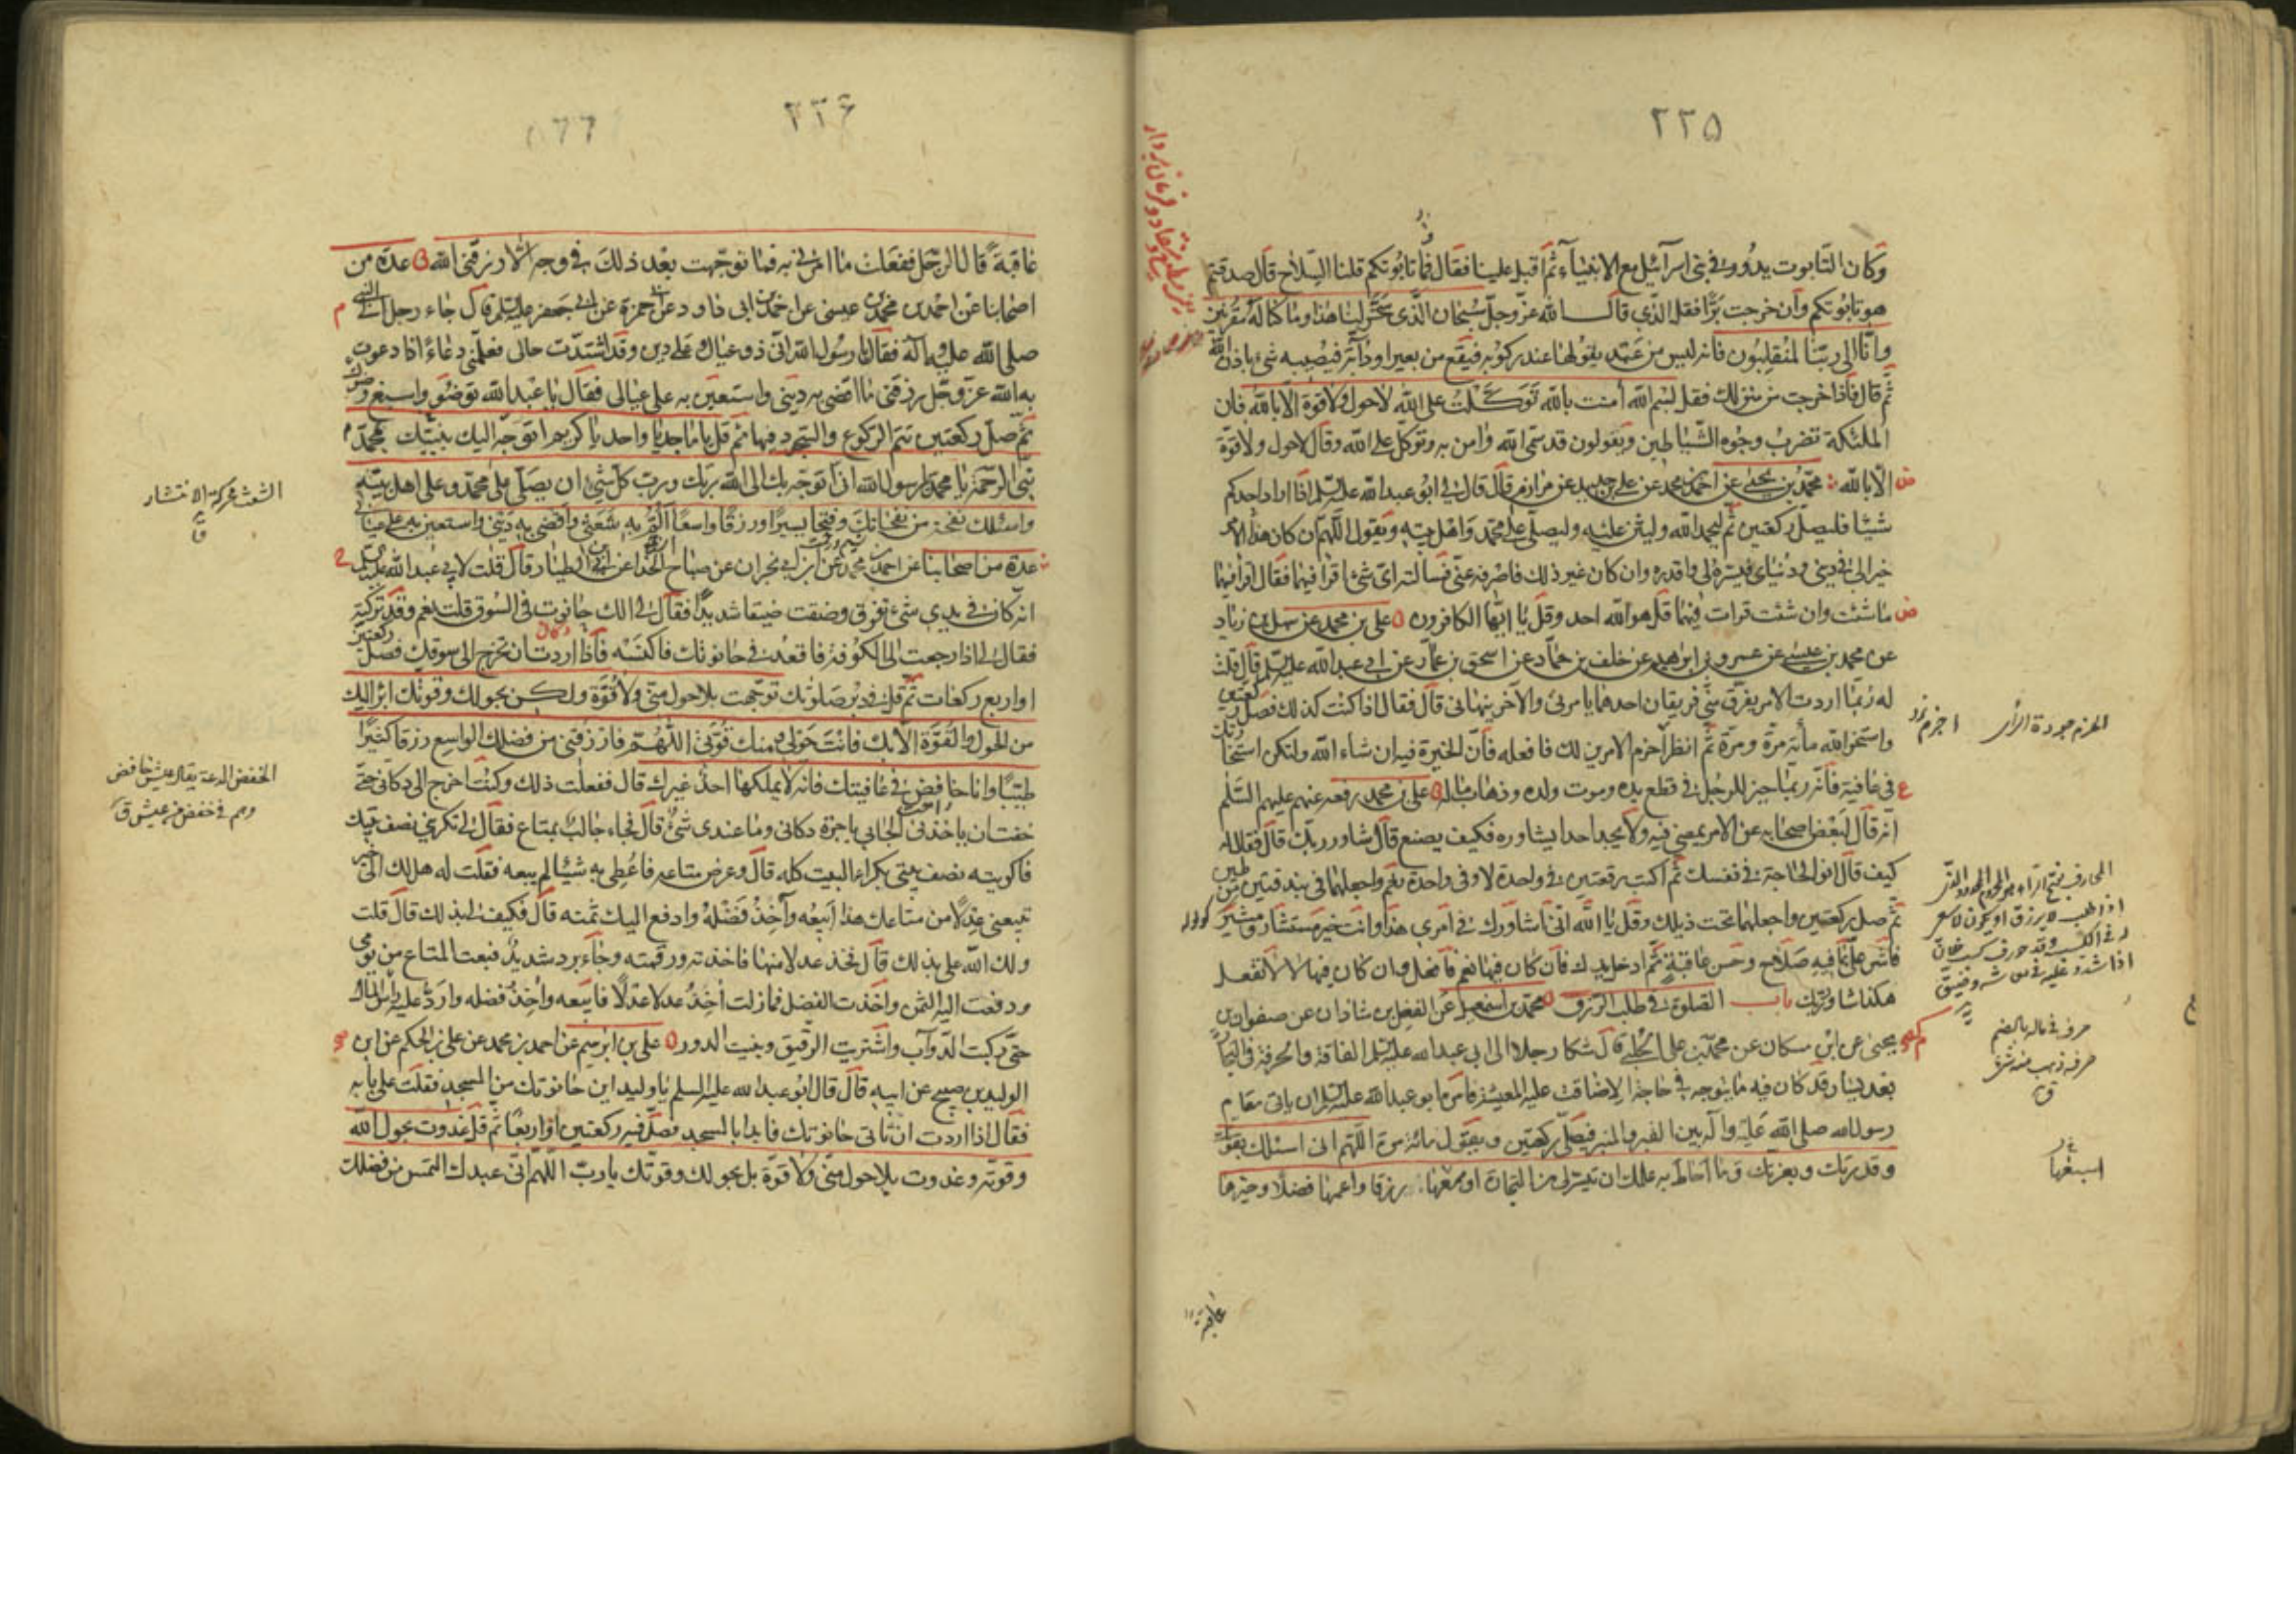 ٢٢٥
وكان التابوت يدور في بني اسرآئيل مع الانبيآء ثم اقبل علينا فقال فما تابوتكم قلنا السلاح قال صدقتم
هو تابوتكم وان خرجت برًّا فقل الذي قال الله عز وجل سُبحان الذي سخّر لنا هذا وما كنا له مُقرنين
وانّا الى ربّنا لمنقلبون فانه ليس من عبد يقولها عند ركوبه فيقع من بعير او دابّة فيُصيبه شئ باذن الله
ثم قال فاذا خرجت من منزلك فقل بسم الله امنت بالله توكّلت على الله لا حول ولا قوة الا بالله فان
الملئكة تضرب وجوه الشياطين ويقولون قد سمّى الله وامن به وتوكّل على الله وقال لا حول ولا قوّة
الّا بالله محمّد بن يحيى عن احمد بن محمد عن علي بن حديد عن مرازم قال قال لي ابو عبد الله عليه السلم اذا اراد احدكم
شيئا فليصلّ ركعتين ثم ليحمد الله وليثن عليه وليصلّ على محمّد واهل بيته ويقول اللّهم ان كان هذا الامر
خيرا لي في ديني ودُنياي فيسّره لي واقدره وان كان غير ذلك فاصرفه عنّي فسألته اىّ شئ اقرا فيهما فقال اقرأ فيهما
ما شئت وان شئت قرات فيهما قل هو الله احد وقل يا ايّها الكافرون علي بن محمد عن سهل بن زياد
عن محمد بن عيسى عن عمرو بن ابراهيم عن خلف بن حمّاد عن اسحق بن عمّار عن ابي عبد الله عليه السلم قال قلت
له ربّما اردت الامر يفرّق منّي فريقان احدهما يامرني والآخر ينهاني قال فقال اذا كنت كذلك فصلّ ركعتين
واستخر الله مأئة مرّة ومرّة ثم انظر احزم الامرين لك فافعله فانّ الخيرة فيه ان شاء الله ولتكن استخارتك
في عافية فانّه ربما خير للرجُل في قطع يده وموت ولده وذهاب ماله علي بن محمد رفعه عنهم عليهم السّلم
انّه قال لبعض اصحابه عن الامر يمضي فيه ولا يجد احدا يشاوره فكيف يصنع قال شاور ربّك قال فقال له
كيف قال انو الحاجة في نفسك ثم اكتب رقعتين في واحدة لا وفي واحدة نعم واجعلهما في بندقتين من طين
ثم صل ركعتين واجعلهما تحت ذيلك وقل يا الله انّي اشاورك في امري هذا وانت خير مستشار ومشير
فاشر علىّ بما فيه صلاح وحسن عاقبة ثم ادخل يدك فان كان فيها نعم فافعل وان كان فيها لا لا تفعل
هكذا شاور ربّك باب الصلوة في طلب الرزق محمد بن اسمعيل عن الفضل بن شاذان عن صفوان بن
يحيى عن ابن مسكان عن محمّد بن علي الحلبي قال شكا رجل الى ابي عبد الله عليه السلم الفاقة والحرفة في التجارة
بعد يسار قد كان فيه ما يتوجه في حاجة الا ضاقت عليه المعيشة فامره ابو عبد الله عليه السلم ان ياتي مقام
رسول الله صلى الله عليه وآله بين القبر والمنبر فيصلّي ركعتين ويقول مائة مرة اللّهم اني اسئلك بقوّتك
وقدرتك وبعزتك وما احاط به علمك ان تيسّر لي من التجارة اوسعها رزقا واعمها فضلا وخيرها
عاقبة
الحزم جودة الراى
حرف في ماله بالضم
حرفة ذهب منه شئ
ق
اسبغها
٢٢٦
عاقبة قال الرّجل ففعلت ما امرني به فما توجّهت بعد ذلك في وجه الّا رزقني الله عدة من
اصحابنا عن احمد بن محمد بن عيسى عن احمد بن ابي داود عن ابي حمزة عن ابي جعفر عليه السلم قال جاء رجل الى النبي
صلى الله عليه وآله فقال يا رسول الله انّي ذو عيال وعلىّ دين وقد اشتدّت حالي فعلّمني دعاءً اذا دعوت
به الله عز وجل رزقني ما اقضي به ديني واستعين به على عيالي فقال يا عبد الله توضّؤ واسبغ وضوءك
ثم صلّ ركعتين تتم الركوع والسّجود فيهما ثم قل يا ماجد يا واحد يا كريم اتوجّه اليك بنبيّك محمّد
نبي الرّحمة يا محمد يا رسول الله اني اتوجّه بك الى الله ربّك وربّ كل شئ ان يصلّي على محمّد وعلى اهل بيته
واسئلك نفحة من نفحاتك وفتحا يسيرا ورزقا واسعًا المّ به شعثي واقضي به ديني واستعين به على عيالي
عدة من اصحابنا عن احمد بن محمد عن ابن ابي نجران عن صباح الحذّا عن ابن الطيّار قال قلت لابي عبد الله عليه السلم
انّه كان في يدي شئ تفرق وضقت ضيقا شديدًا فقال لي الك حانوت في السّوق قلت نعم وقد تركته
فقال لي اذا رجعت الى الكوفة فاقعد في حانوتك فاكنسه فاذا اردت ان تخرج الى سوقك فصلّ ركعتين
او اربع ركعات ثم قل في دبر صلوتك توجّهت بلا حول منّي ولا قوّة ولكن بحولك وقوّتك ابرأ اليك
من الحول والقوّة الّا بك فانت حولي ومنك قوّتي اللّهم فارزقني من فضلك الواسع رزقا كثيرًا
طيّبًا وانا خافض في عافيتك فانّه لا يملكها احد غيرك قال ففعلت ذلك وكنت اخرج الى دكّاني حتى
خفت ان ياخذني الجابي باجرة دكاني وما عندي شئ قال فجاء جالب بمتاع فقال لي تكريني نصف بيتك
فاكريته نصف بيتي بكراء البيت كله قال وعرض متاعه فاعُطي به شيئا لم يبعه فقلت له هل لك الىّ خير
تبيعني عدلا من متاعك هذا ابيعُه وآخذ فضله وادفع اليك ثمنه قال فكيف لي بذلك قال قلت
ولك الله علىّ بذلك قال فخذ عدلا منها فاخذته ورقمته وجآء برد شديد فبعت المتاع من يومي
ودفعت اليه الثمن واخذت الفضل فما زلت آخذ عدلا عدلًا فابيعه وآخذ فضله واردّ عليه رأس المال
حتّى ركبت الدّوآب واشتريت الرّقيق وبنيت الدور علي بن ابرهيم عن احمد بن محمد عن علي بن الحكم عن ابن
الوليد بن صبيح عن ابيه قال قال ابو عبد الله عليه السلم يا وليد اين حانوتك من المسجد فقلت على بابه
فقال اذا اردت ان تاتي حانوتك فابدا بالمسجد فصلّ فيه ركعتين او اربعًا ثم قل غدوت بحول الله
وقوّته وغدوت بلا حول منّي ولا قوّة بل بحولك وقوّتك يا ربّ اللّهم انّي عبدك التمس من فضلك
الشعث محركة الانتشار
الخفض الدعة يقال عيش خافض
وهم في خفض من عيش ق